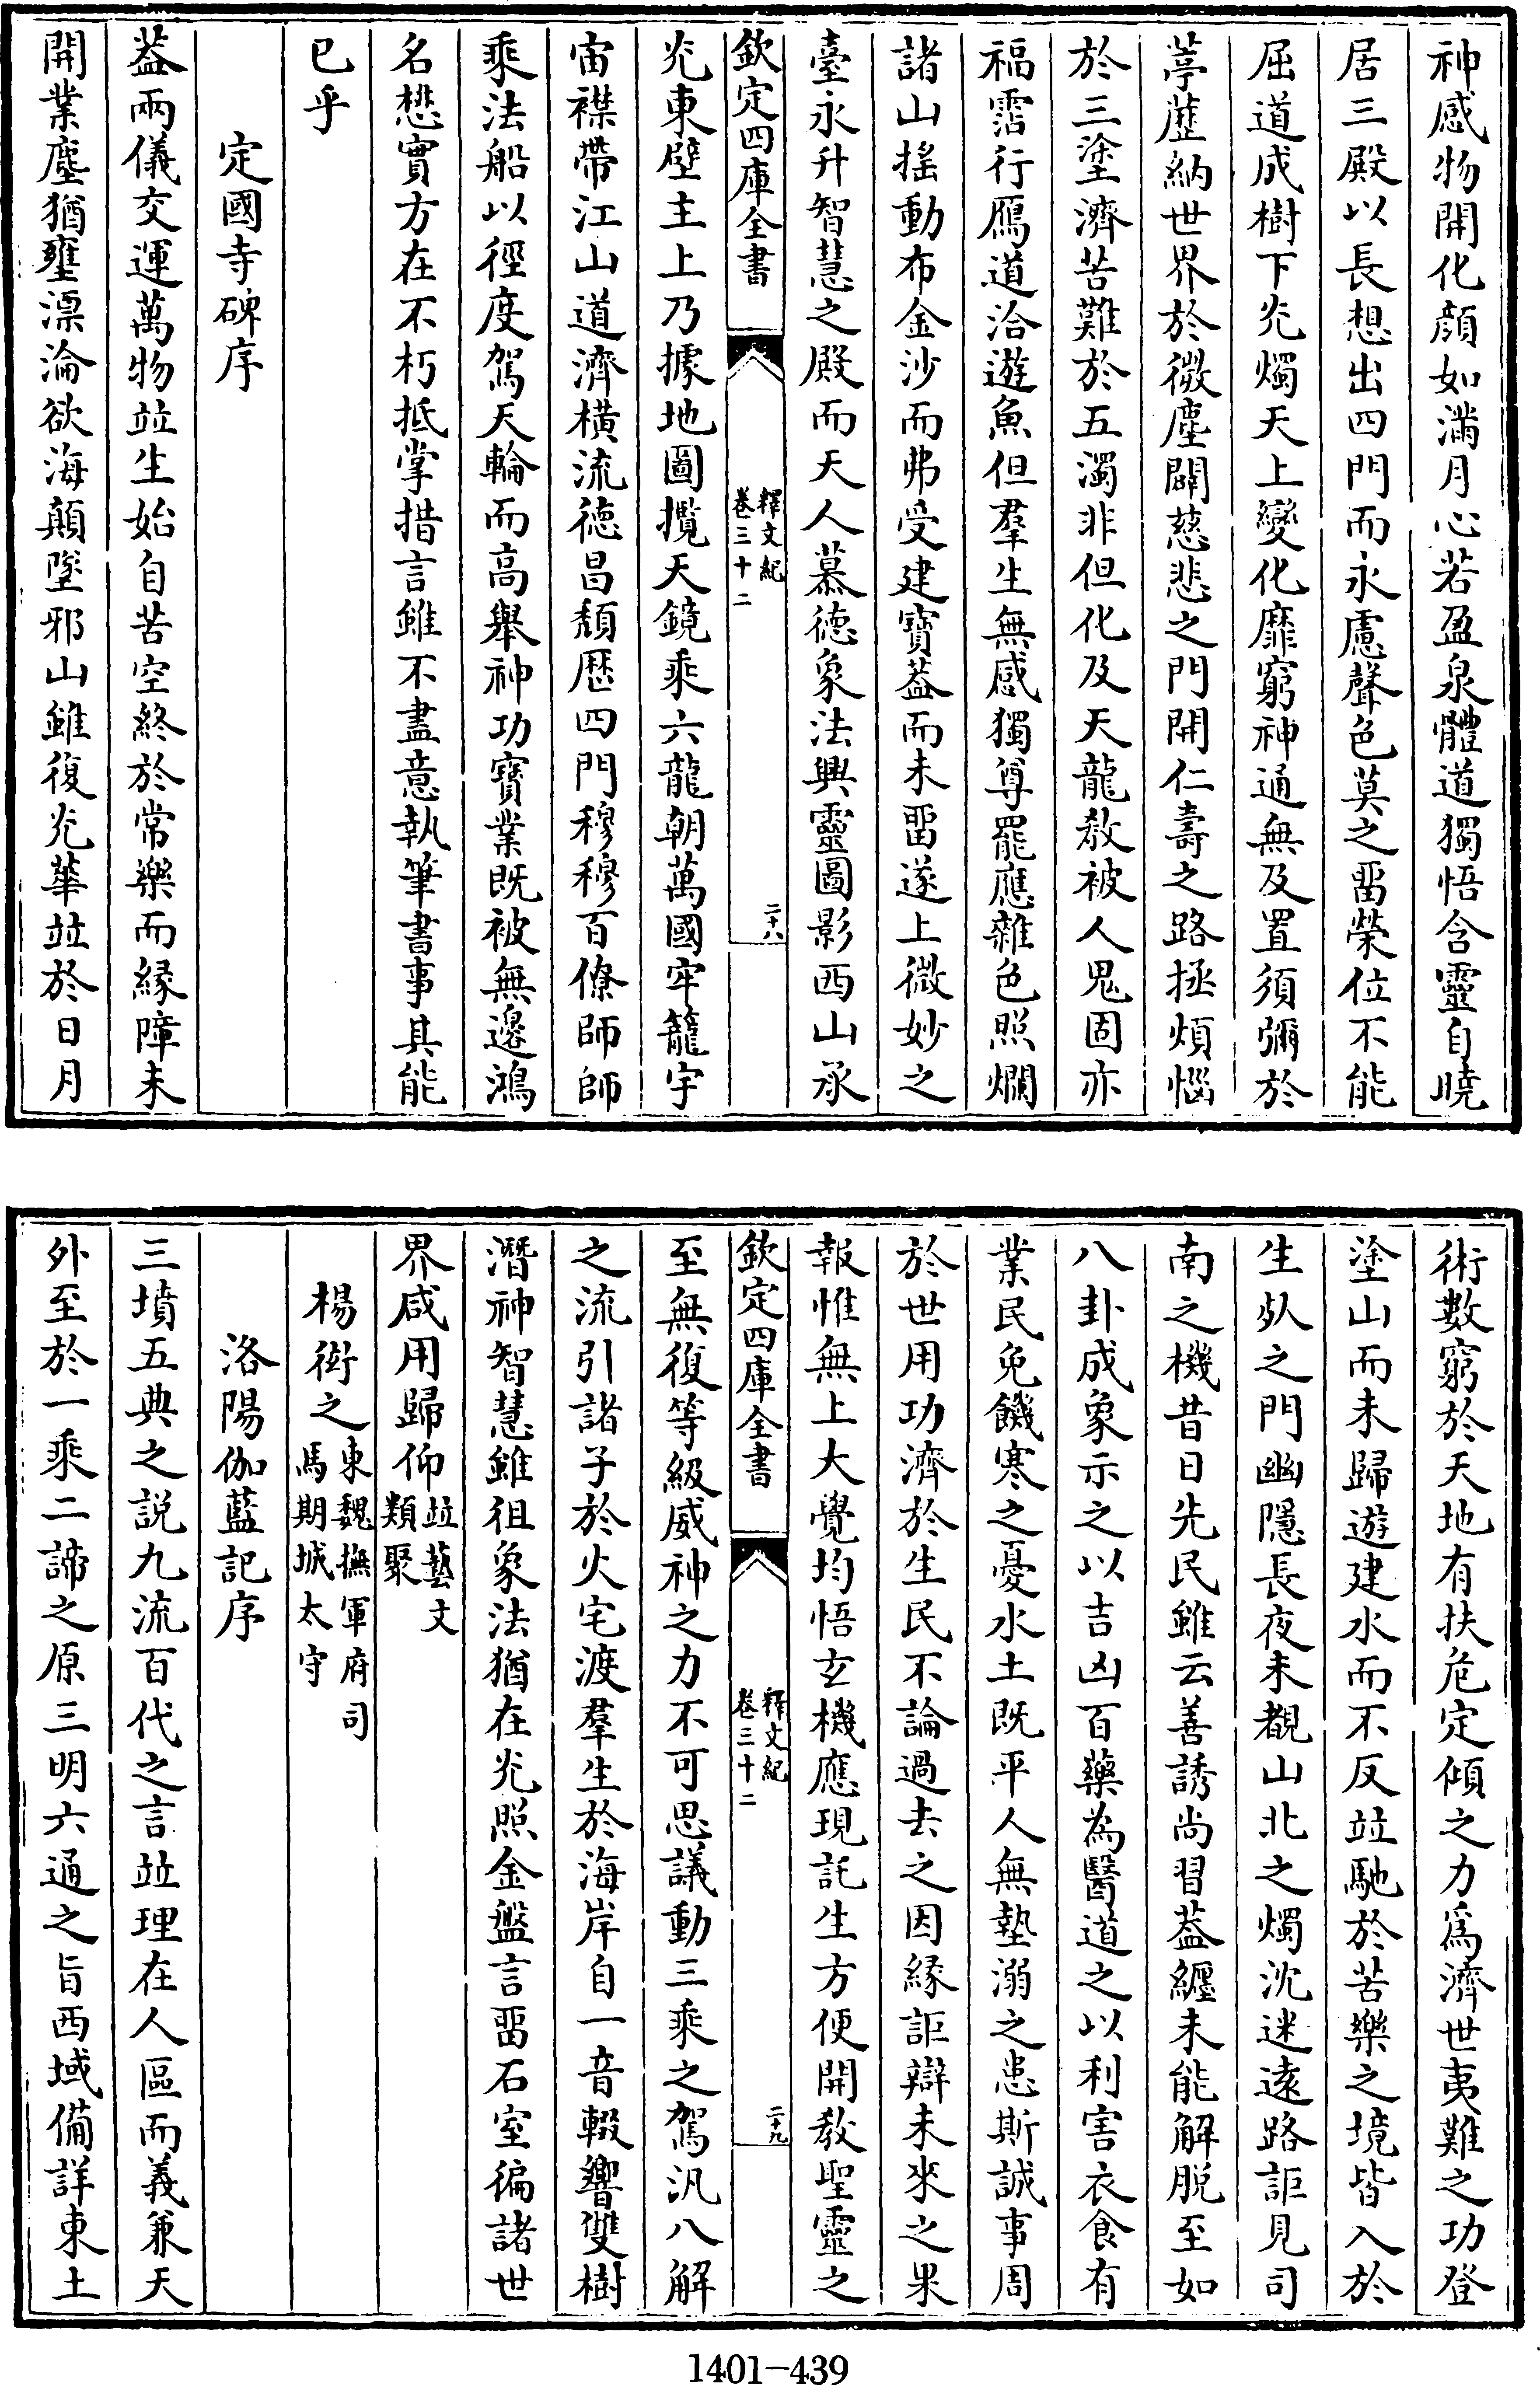 神感物開化顔如滿月心若盈泉體道獨悟含靈自曉
居三殿以長想出四門而永慮聲色莫之畱榮位不能
屈道成樹下光燭天上變化靡窮神通無及置須彌於
葶藶納世界於微塵闢慈悲之門開仁壽之路拯煩惱
於三塗濟苦難於五濁非但化及天龍教被人鬼固亦
福霑行鴈道洽遊魚但羣生無感獨尊罷應雜色照爛
諸山搖動布金沙而弗受建寶葢而未畱遂上微妙之
臺永升智慧之殿而天人慕德象法興靈圖影西山承
欽定四庫全書
釋文紀
卷三十二
二十八
光東壁主上乃據地圖攬天鏡乘六龍朝萬國牢籠宇
宙襟帶江山道濟橫流德昌頽歴四門穆穆百僚師師
乘法船以徑度駕天輪而高舉神功寶業既被無邊鴻
名懋實方在不朽抵掌措言雖不盡意執筆書事其能
已乎
定國寺碑序
葢兩儀交運萬物竝生始自苦空終於常樂而緣障未
開業塵猶壅漂淪欲海顛墜邪山雖復光華竝於日月
術數窮於天地有扶危定傾之力爲濟世夷難之功登
塗山而未歸遊建水而不反竝馳於苦樂之境皆入於
生死之門幽隱長夜未覩山北之燭沈迷遠路詎見司
南之機昔日先民雖云善誘尚習葢纏未能解脱至如
八卦成象示之以吉凶百藥為醫道之以利害衣食有
業民免饑寒之憂水土既平人無墊溺之患斯誠事周
於世用功濟於生民不論過去之因緣詎辯未來之果
報惟無上大覺均悟玄機應現託生方便開教聖靈之
欽定四庫全書
釋文紀
卷三十二
二十九
至無復等級威神之力不可思議動三乘之駕汎八解
之流引諸子於火宅渡羣生於海岸自一音輟響雙樹
潛神智慧雖徂象法猶在光照金盤言畱石室徧諸世
界咸用歸仰竝藝文類聚
楊衒之東魏撫軍府司馬期城太守
洛陽伽藍記序
三墳五典之説九流百代之言竝理在人區而義兼天
外至於一乘二諦之原三明六通之旨西域備詳東土
1401-439